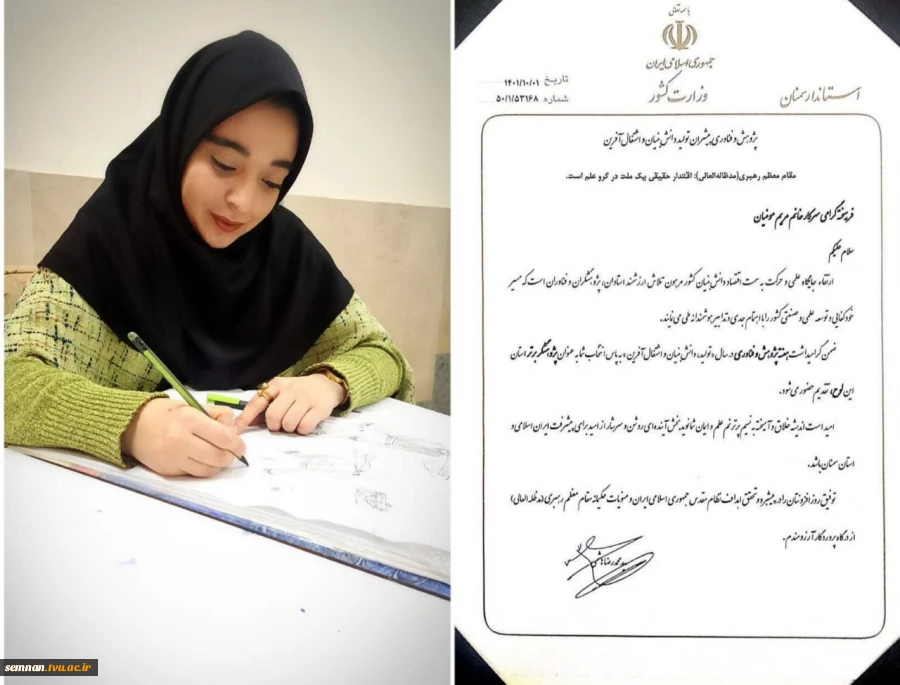 باسمه تعالی
جمهوری اسلامی ایران
وزارت کشور
استانداری سمنان
تاریخ ۱۴۰۱/۱۰/۰۱
شماره ۵۰/۱/۵۳۱۶۸
پژوهش و فناوری، پیشران تولید دانش بنیان و اشتغال آفرین
مقام معظم رهبری(مدظله‌العالی): اقتدار حقیقی یک ملت در گرو علم است.
فرهیخته گرامی سرکار خانم مریم مومنیان
سلام علیکم
ارتقاء جایگاه علمی و حرکت به سمت اقتصاد دانش بنیان کشور مرهون تلاش ارزشمند استادان، پژوهشگران و فناوران است که مسیر
خودکفایی و توسعه علمی و صنعتی کشور را با اهتمام جدی و تدابیر هوشمندانه طی می‌نمایند.
ضمن گرامیداشت هفته پژوهش و فناوری در سال «تولید، دانش بنیان و اشتغال آفرین»، به پاس انتخاب شما به عنوان پژوهشگر برتر استان
این لوح، تقدیم حضور می‌شود.
امید است اندیشه خلاق و آمیخته به نسیم پرترنم علم و ایمان شما نویدبخش آینده‌ای روشن و سرشار از امید برای پیشرفت ایران اسلامی و
استان سمنان باشد.
توفیق روزافزونتان را در پیشبرد و تحقق اهداف نظام مقدس جمهوری اسلامی ایران و منویات حکیمانه مقام معظم رهبری (مدظله العالی)
از درگاه پروردگار آرزومندم.
سید محمدرضا هاشمی
semnan.tvu.ac.ir